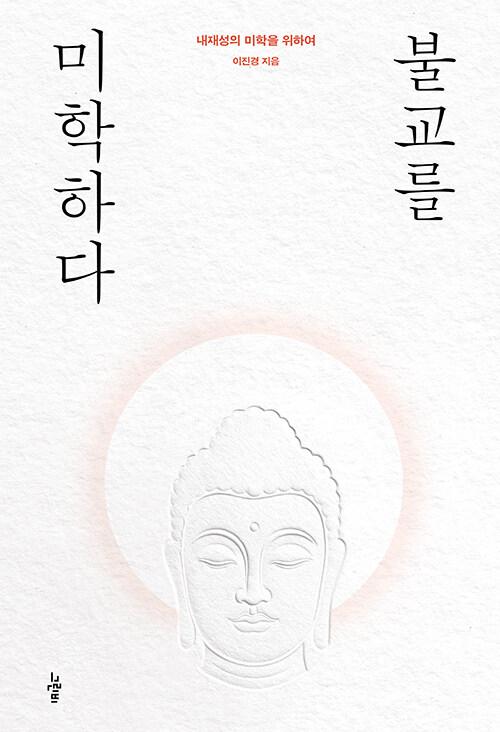 불교를
미학하다
내재성의 미학을 위하여
이진경 지음
그린비